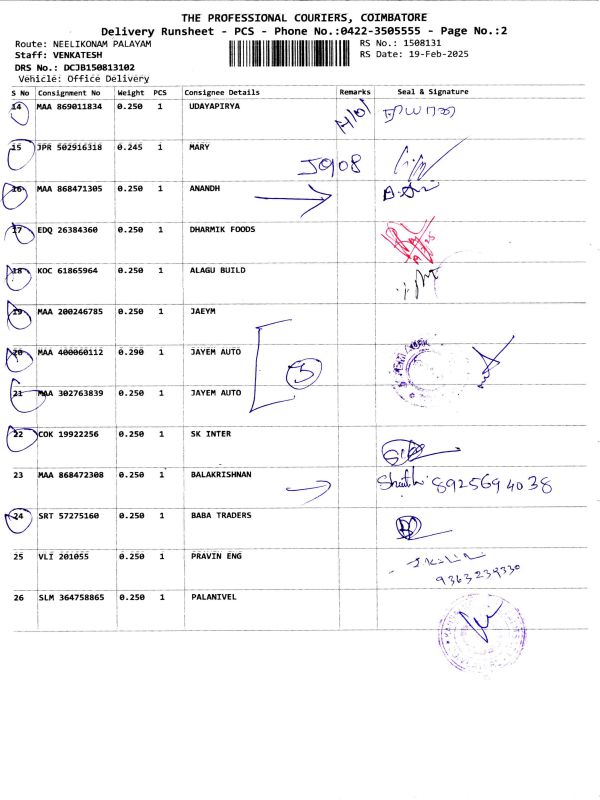 THE PROFESSIONAL COURIERS, COIMBATORE
Delivery Runsheet - PCS - Phone No.:0422-3505555 - Page No.:2
Route: NEELIKONAM PALAYAM
RS No.: 1508131
Staff: VENKATESH
RS Date: 19-Feb-2025
DRS No.: DCJB150813102
Vehicle: Office Delivery
S No Consignment No Weight PCS Consignee Details Remarks Seal & Signature
14 MAA 869011834 0.250 1 UDAYAPIRYA
15 JPR 502916318 0.245 1 MARY
J908
16 MAA 868471305 0.250 1 ANANDH
17 EDQ 26384360 0.250 1 DHARMIK FOODS
18 KOC 61865964 0.250 1 ALAGU BUILD
19 MAA 200246785 0.250 1 JAEYM
20 MAA 400060112 0.290 1 JAYEM AUTO
3
21 MAA 302763839 0.250 1 JAYEM AUTO
22 COK 19922256 0.250 1 SK INTER
23 MAA 868472308 0.250 1 BALAKRISHNAN
8925694038
24 SRT 57275160 0.250 1 BABA TRADERS
25 VLI 201055 0.250 1 PRAVIN ENG
9363239330
26 SLM 364758865 0.250 1 PALANIVEL